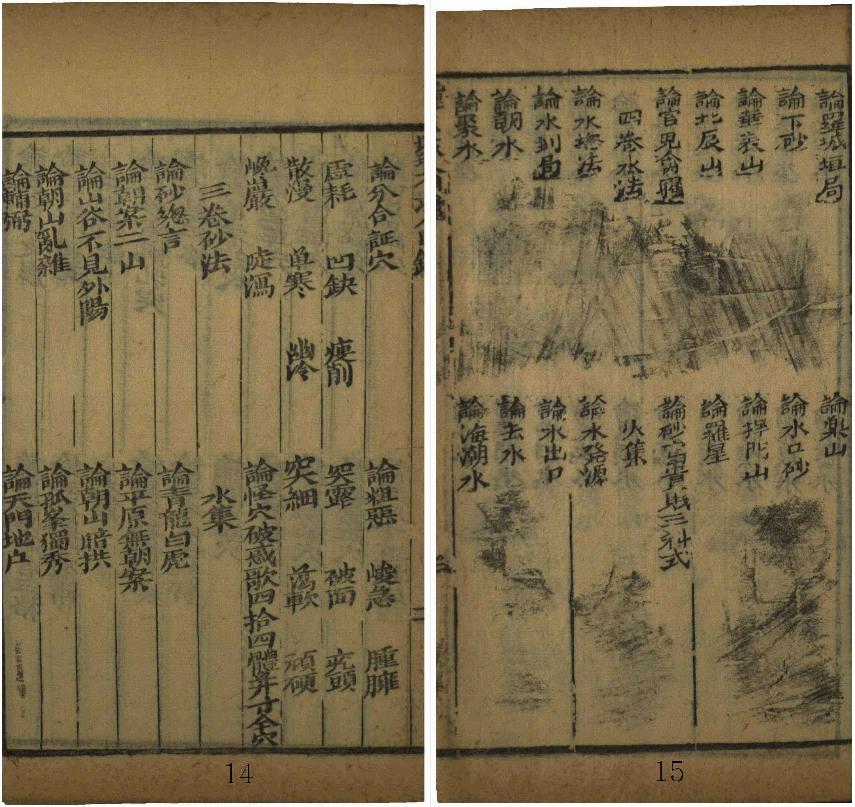 論分合証穴
論粗惡 峻急 臃腫
虛耗 凹缺 瘦削
突露 破面 疙頭
散漫 單寒 幽冷
突細 蕩軟 頑硬
巉巖 陡瀉
論怪穴破惑歌四拾四體并寸金穴
三卷砂法
水集
論砂總言
論青龍白虎
論朝案二山
論平原無朝案
論山谷不見外陽
論朝山暗拱
論朝山亂雜
論孤峯獨秀
論輔弼
論天門地户
14
論羅城垣局
論樂山
論下砂
論水口砂
論華表山
論捍門山
論北辰山
論羅星
論官鬼禽曜
論砂富貴賤三科式
四卷水法
火集
論水總法
論水發源
論水到局
論水出口
論朝水
論去水
論聚水
論海潮水
15